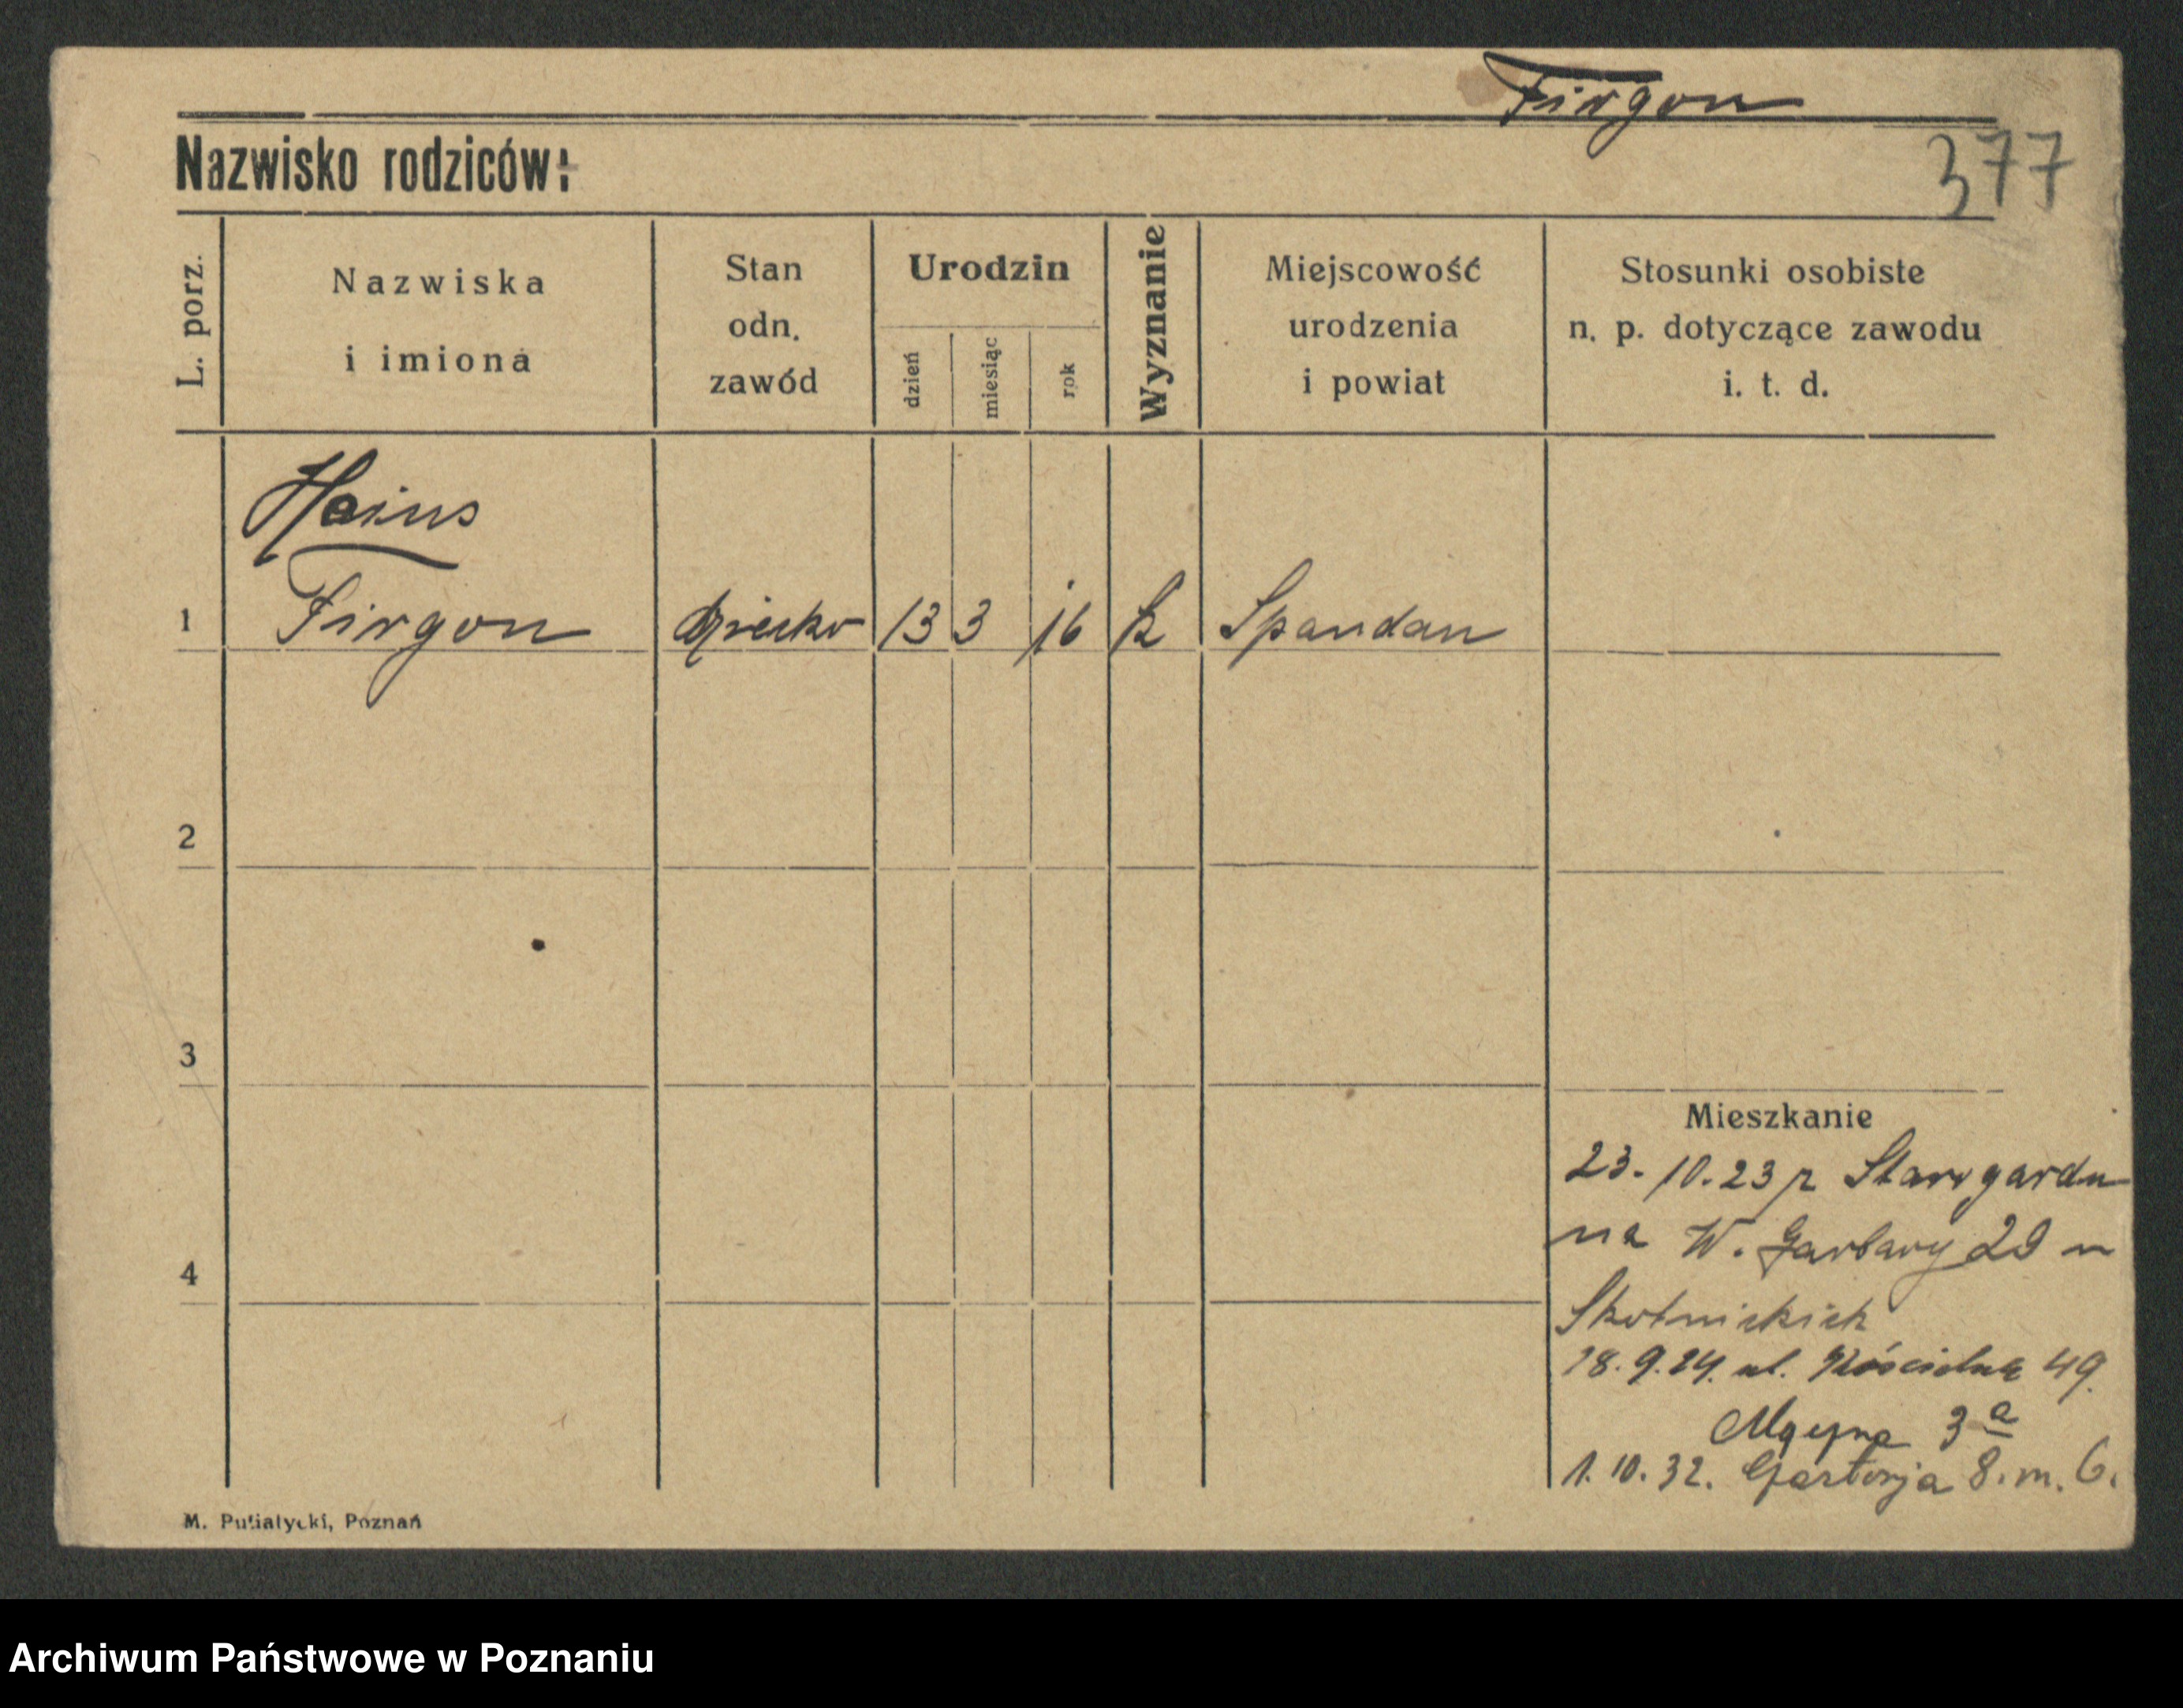 Firgon
377
Nazwisko rodziców:
L. porz.
Nazwiska
i imiona
Stan
odn.
zawód
Urodzin
dzień
miesiąc
rok
Wyznanie
Miejscowość
urodzenia
i powiat
Stosunki osobiste
n. p. dotyczące zawodu
i. t. d.
Heinz
1 Firgon dziecko 13 3 16 k Spandau
2
3
4
Mieszkanie
23. 10. 23 z Starogardu
na W. Garbary 29 u
Skotnickich
18. 9. 24. ul. Kościelna 49.
3 a
1. 10. 32. 8. m. 6.
M. Putiatycki, Poznań
Archiwum Państwowe w Poznaniu